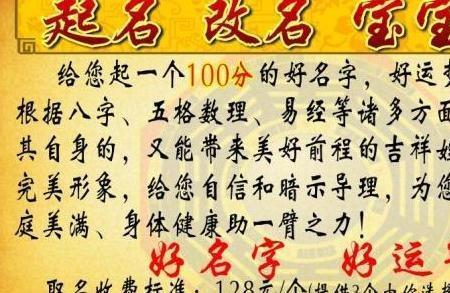 起名 改名 宝宝
给您起一个100分的好名字，好运
根据八字、五格数理、易经等诸多方面
其自身的，又能带来美好前程的吉祥姓
完美形象，给您自信和暗示导理，为您
庭美满、身体健康助一臂之力！
好名字 好运
取名收费标准：128元/个(提供3个由您选择